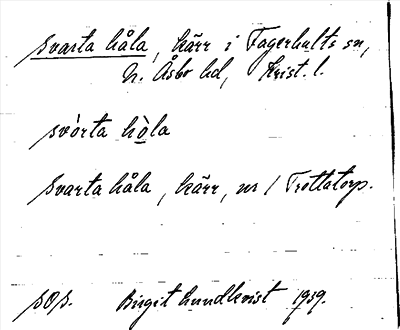 Svarta håla, kärr i Fagerhults sn,
N. Åsbo hd, Krist. l.
svòrta hòla
Svarta håla, kärr, nr 1 Trottatorp.
sOs. Birgit Lundkvist 1939.